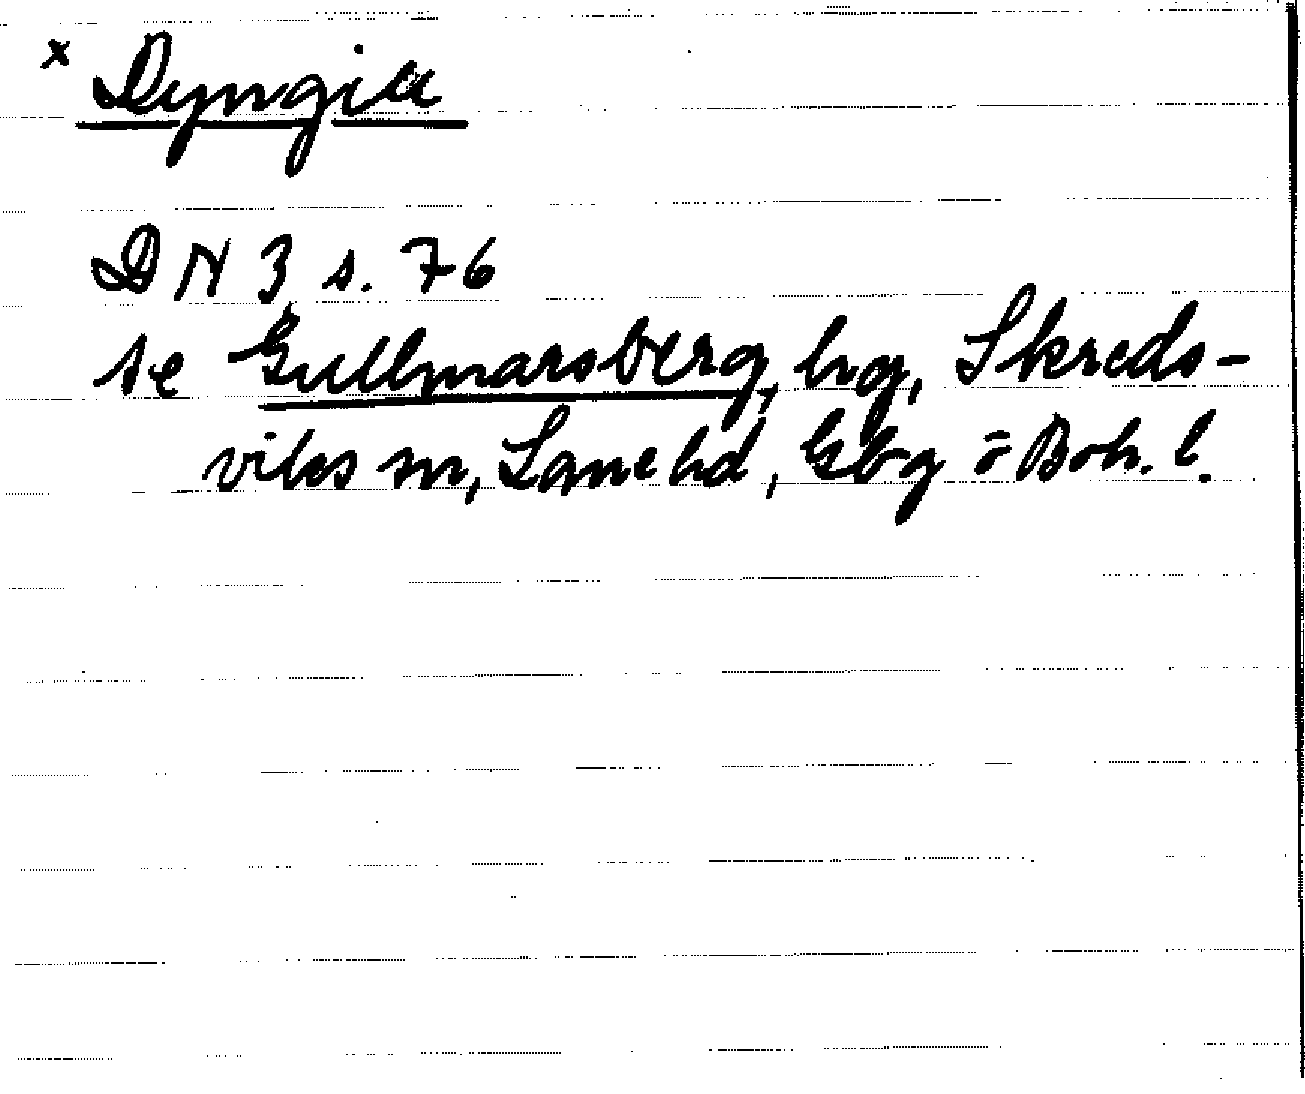 x Dyngia
DN 3 s. 76
se Gullmarsberg, hrg, Skreds-
viks sn, Lane hd, Gbg o Boh. l.